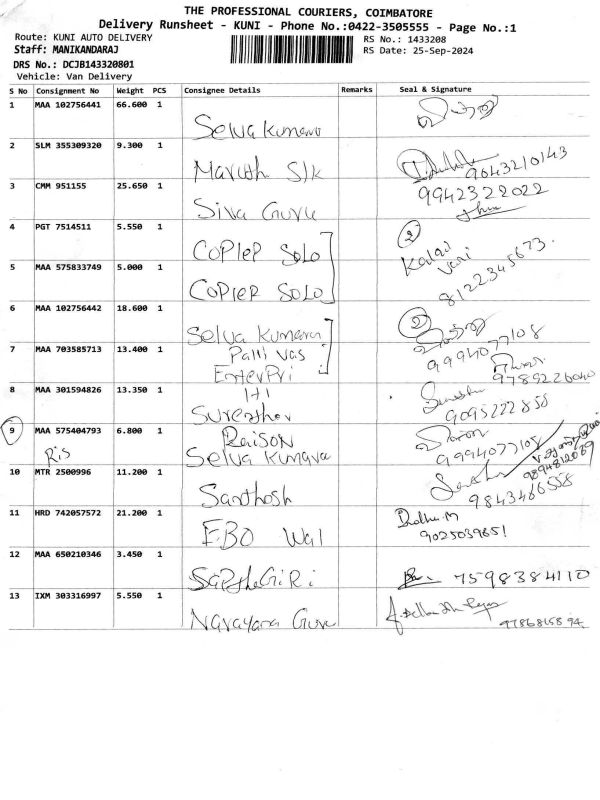 THE PROFESSIONAL COURIERS, COIMBATORE
Delivery Runsheet - KUNI - Phone No.:0422-3505555 - Page No.:1
Route: KUNI AUTO DELIVERY
RS No.: 1433208
Staff: MANIKANDARAJ
RS Date: 25-Sep-2024
DRS No.: DCJB143320801
Vehicle: Van Delivery
S No Consignment No Weight PCS Consignee Details Remarks Seal & Signature
1 MAA 102756441 66.600 1
Selva Kumara
2 SLM 355309320 9.300 1
Maruth S/k 9043210143
3 CMM 951155 25.650 1 9942322022
Siva Guru
4 PGT 7514511 5.550 1 2
COPIEP SOLO
5 MAA 575833749 5.000 1 8122345673
COPIER SOLO
6 MAA 102756442 18.600 1 2
Selva Kumara 9994077108
7 MAA 703585713 13.400 1
8 MAA 301594826 13.350 1
9095222858
9 MAA 575404793 6.800 1 RAISON
RIS Selva Kumara 9994077108
10 MTR 2500996 11.200 1
Santhosh 9843466558
11 HRD 742057572 21.200 1
EBO Wal 9025039651
12 MAA 650210346 3.450 1
SaptheGiRi 7598384110
13 IXM 303316997 5.550 1
Narayana Guru